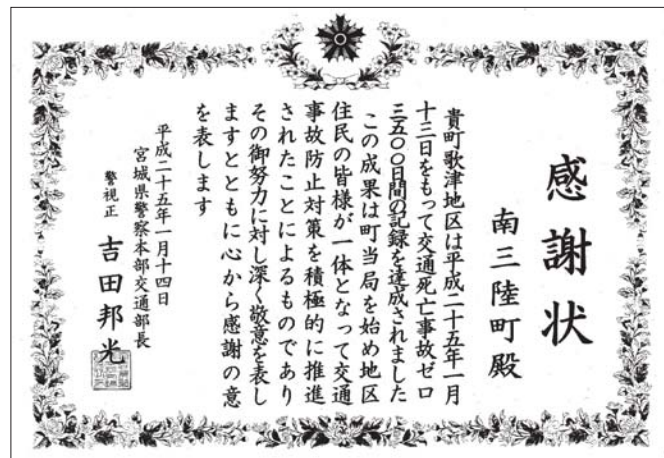 感謝状
南三陸町殿
貴町歌津地区は平成二十五年一月
十三日をもって交通死亡事故ゼロ
三五〇〇日間の記録を達成されました
この成果は町当局を始め地区
住民の皆様が一体となって交通
事故防止対策を積極的に推進
されたことによるものであり
その御努力に対し深く敬意を表し
ますとともに心から感謝の意
を表します
平成二十五年一月十四日
宮城県警察本部交通部長
警視正 吉田邦光